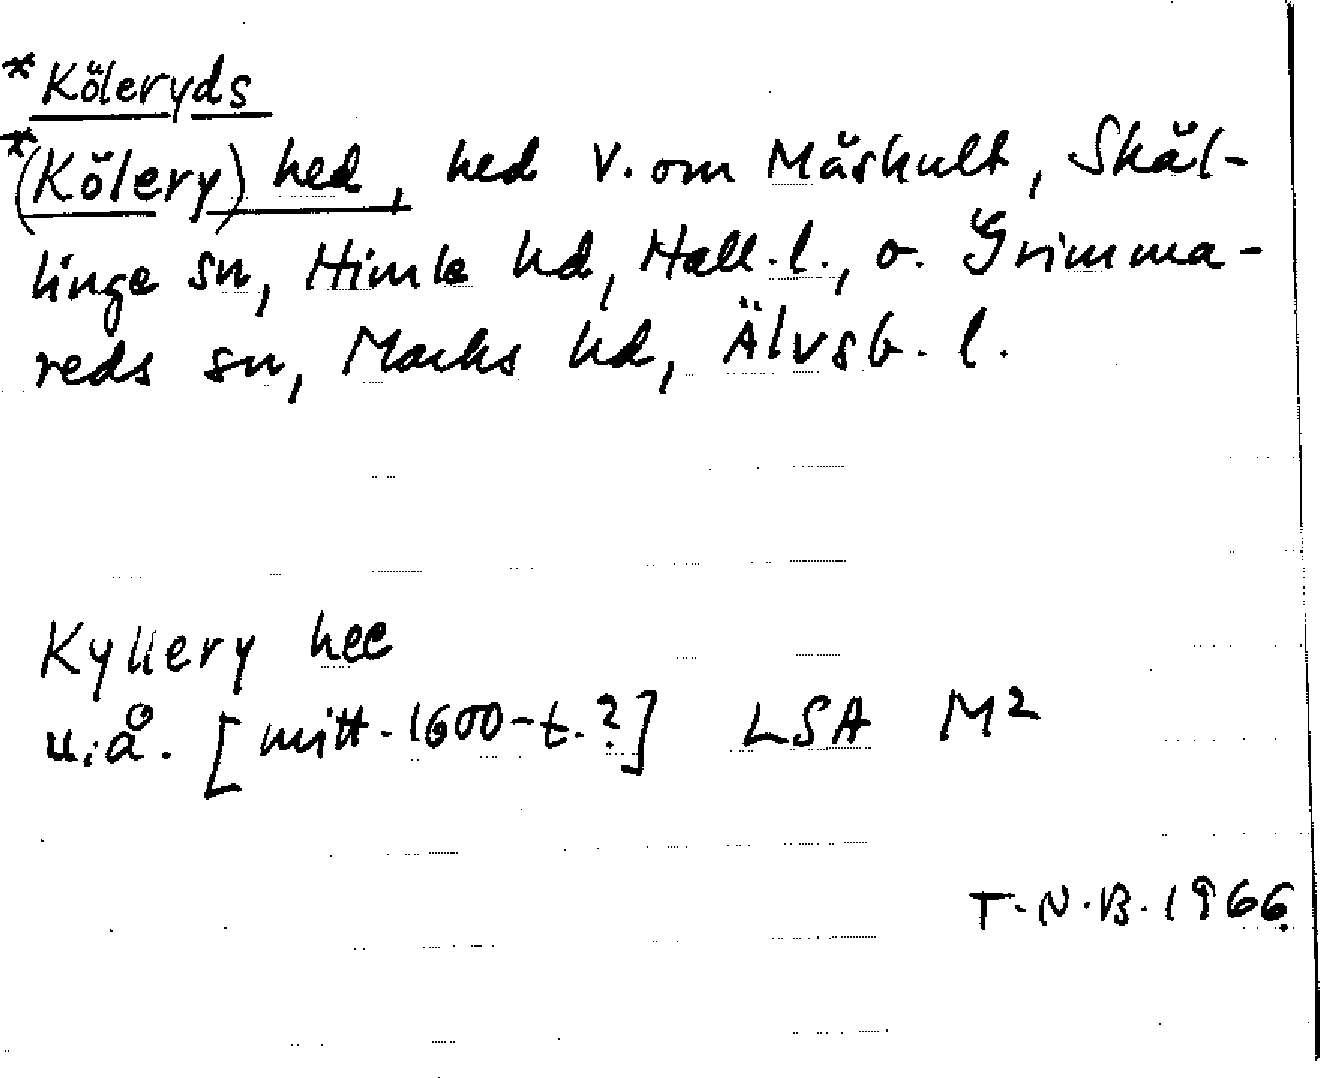 *Köleryds
*(Kölery) hed, hed V. om Måskult, Skäl-
linge sn, Himle hd, Hall. l., o. Grimma-
reds sn, Marks hd, Älvsb. l.
Kyllery hee
u.å. [mitt. 1600-t.?] LSA M2
T.N.B. 1966.